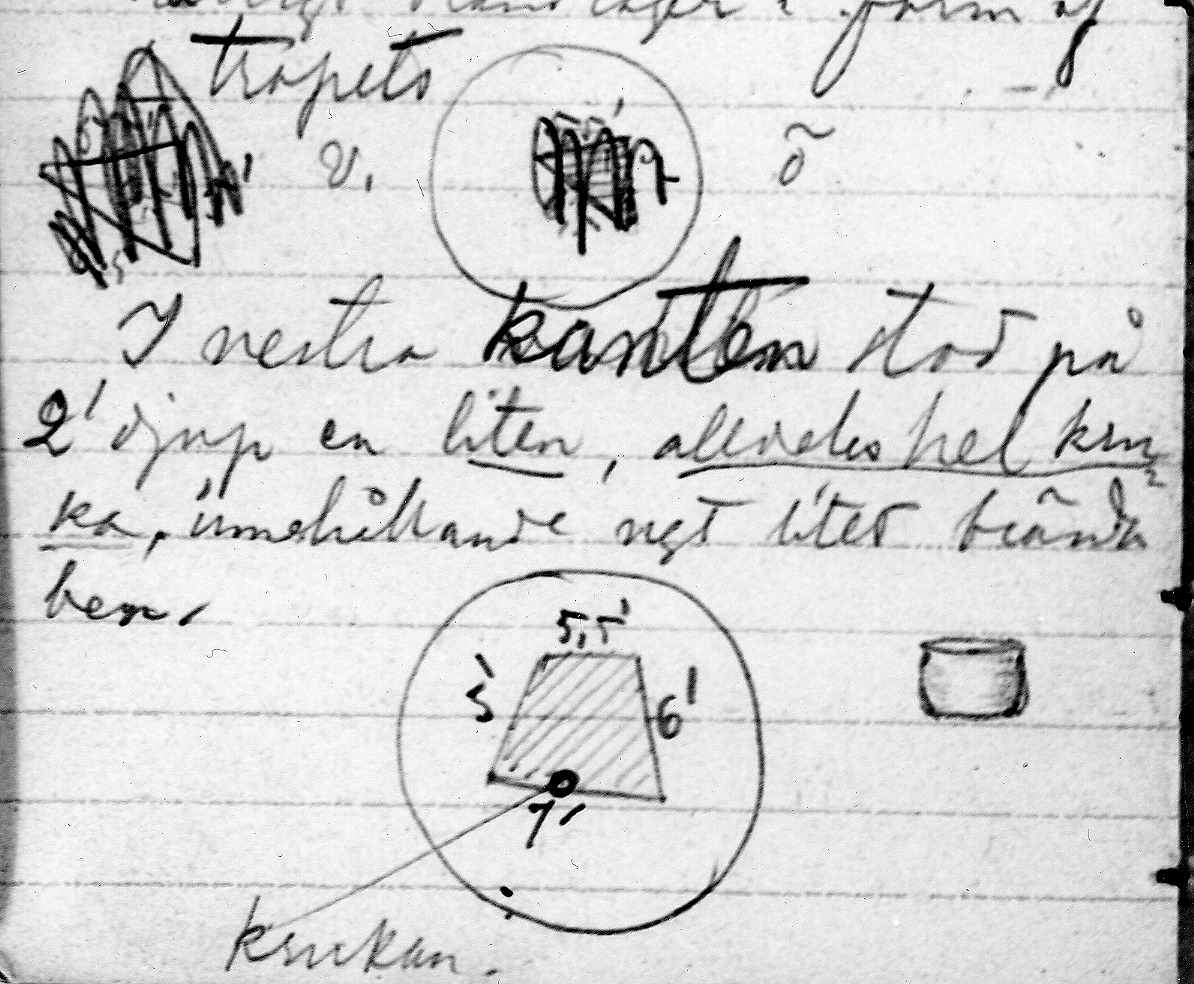 form af
trapets
v. ö
I vestra kanten stod på
2' djup en liten, alldeles hel kru-
ka, innehållande ngt litet brända
ben.
5,5'
5' 6'
7'
krukan.